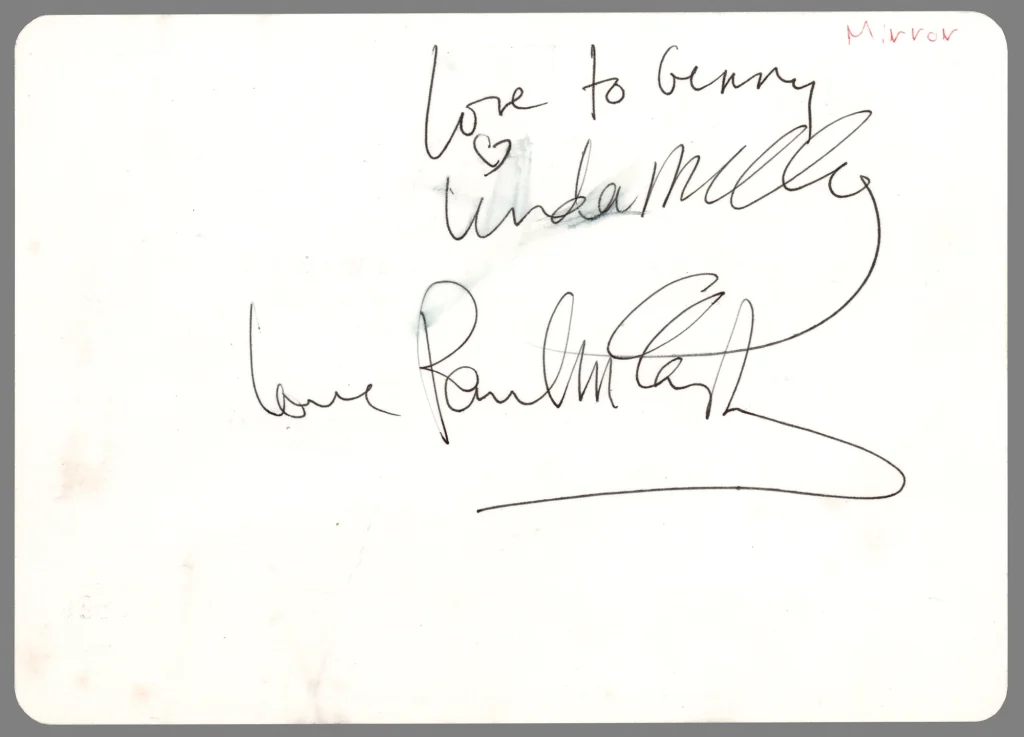 Mirror
Love to Genny
Linda McCartney
love Paul McCartney